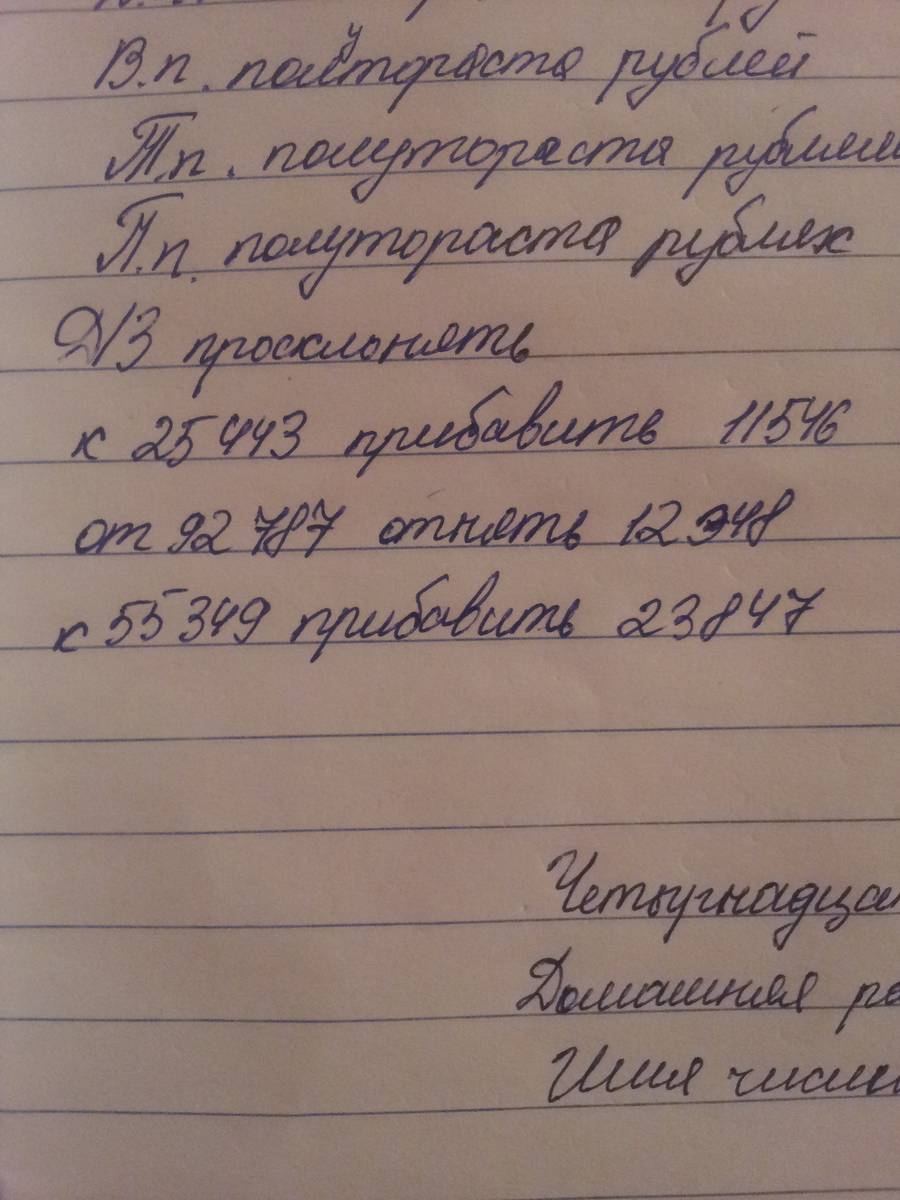 В.п. полутораста рублей
Т.п. полутораста рублям
П.п. полутораста рублях
Д/З просклонять
к 25 443 прибавить 11546
от 92 787 отнять 12 348
к 55 349 прибавить 23 847
Четырнадца
Домашняя ра
Имя числи